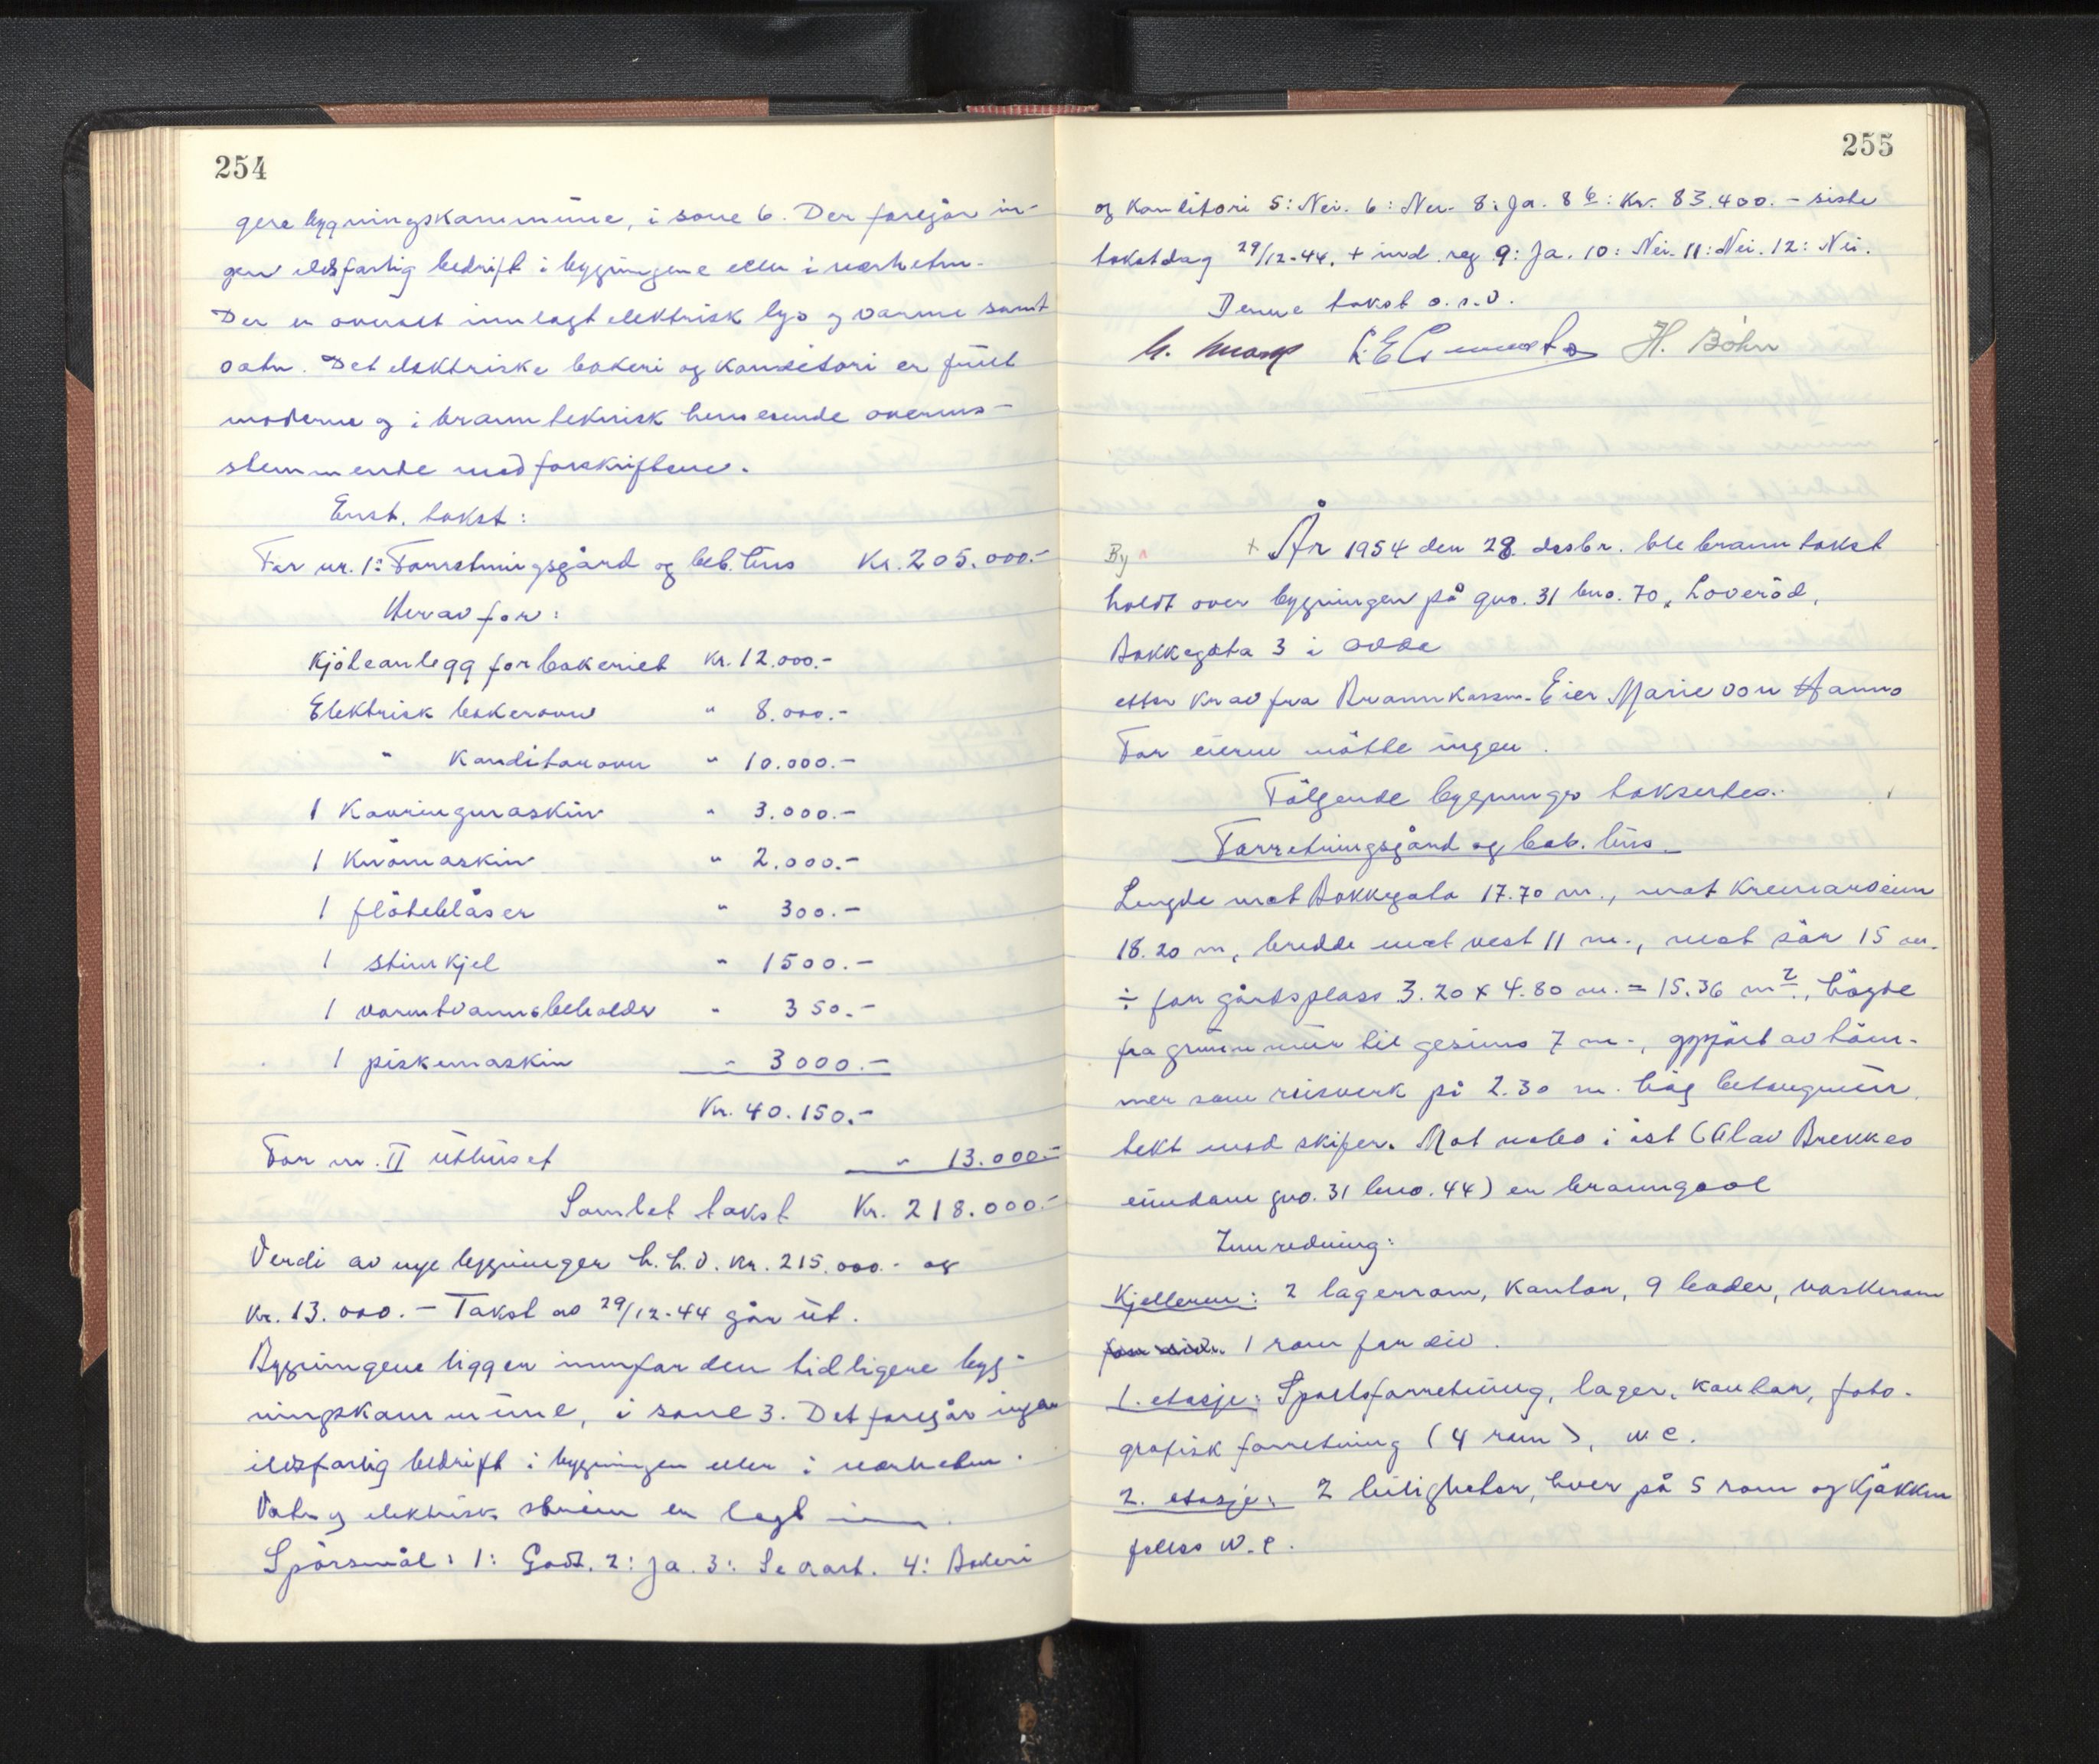 254
gere bygningskommune, i sone 6. Der foregår in-
gen ildsfarlig bedrift i bygningene eller i nærheten.
Der er overalt innlagt elektrisk lys og varme samt
vatn. Det elektriske bakeri og konditori er fullt
moderne og i brannteknisk henseende overens-
stemmende med forskriftene.
Enst. takst:
For nr. 1: Forretningsgård og beb. hus Kr. 205.000.-
Herav for:
Kjøleanlegg for bakeriet Kr. 12.000.-
Elektrisk bakerovn " 8.000.-
" Konditorovn " 10.000.-
1 Kavringmaskin " 3.000.-
1 Knömaskin " 2.000.-
1 flöteblåser " 300.-
1 stimkjel " 1500.-
1 varmtvannsbeholder " 350.-
1 piskemaskin " 3000.-
Kr. 40.150.-
For nr. II Uthuset " 13.000.-
Samlet takst Kr. 218.000.-
Verdi av nye bygninger h.h.v. Kr. 215.000.- og
Kr. 13.000.- Takst av 29/12-44 går ut.
Bygningene ligger innfor den tidligere byg-
ningskommune, i sone 3. Det foregår ingen
ildsfarlig bedrift i bygningen eller i nærheten.
Vatn og elektrisk ström er lagt inn.
Spörsmål: 1: Godt. 2: Ja. 3: Se 4: Bakeri
255
og Konditori 5: Nei. 6: Nei. 8: Ja. 8 b: Kr. 83.400.- siste
takstdag 29/12-44. + 9: Ja. 10: Nei. 11: Nei. 12: Nei.
Denne takst o.s.v.
H. Böhn
By
+ År 1954 den 28. desbr. ble branntakst
holdt over bygningen på gno. 31 bno. 70, Loveröd,
Bakkegata 3 i Odda
etter krav fra Brannkassen. Eier Marie von Hanno
For eieren mötte ingen.
Fölgende bygninger taksertes:
Forretningsgård og beb. hus.
Lengde mot Bakkegata 17.70 m., mot Kremarveien
18.20 m, bredde mot vest 11 m., mot sör 15 m.
÷ for gårdsplass 3.20 x 4.80 m. = 15.36 m2., högde
fra grunnmur til gesims 7 m., oppfört av töm-
mer som reisverk på 2.30 m. hög betongmur,
tekt med skifer. Mot nabo i öst (Olav Brekkes
eiendom gno. 31 bno. 44) er branngavl
Innredning:
Kjelleren: 2 lagerrom, kontor, 9 boder, vaskerom
for div. 1 rom for div.
1. etasje: Sportsforretning, lager, kontor, foto-
grafisk forretning (4 rom), w c.
2. etasje: 2 leiligheter, hver på 5 rom og kjökken
felles w.c.